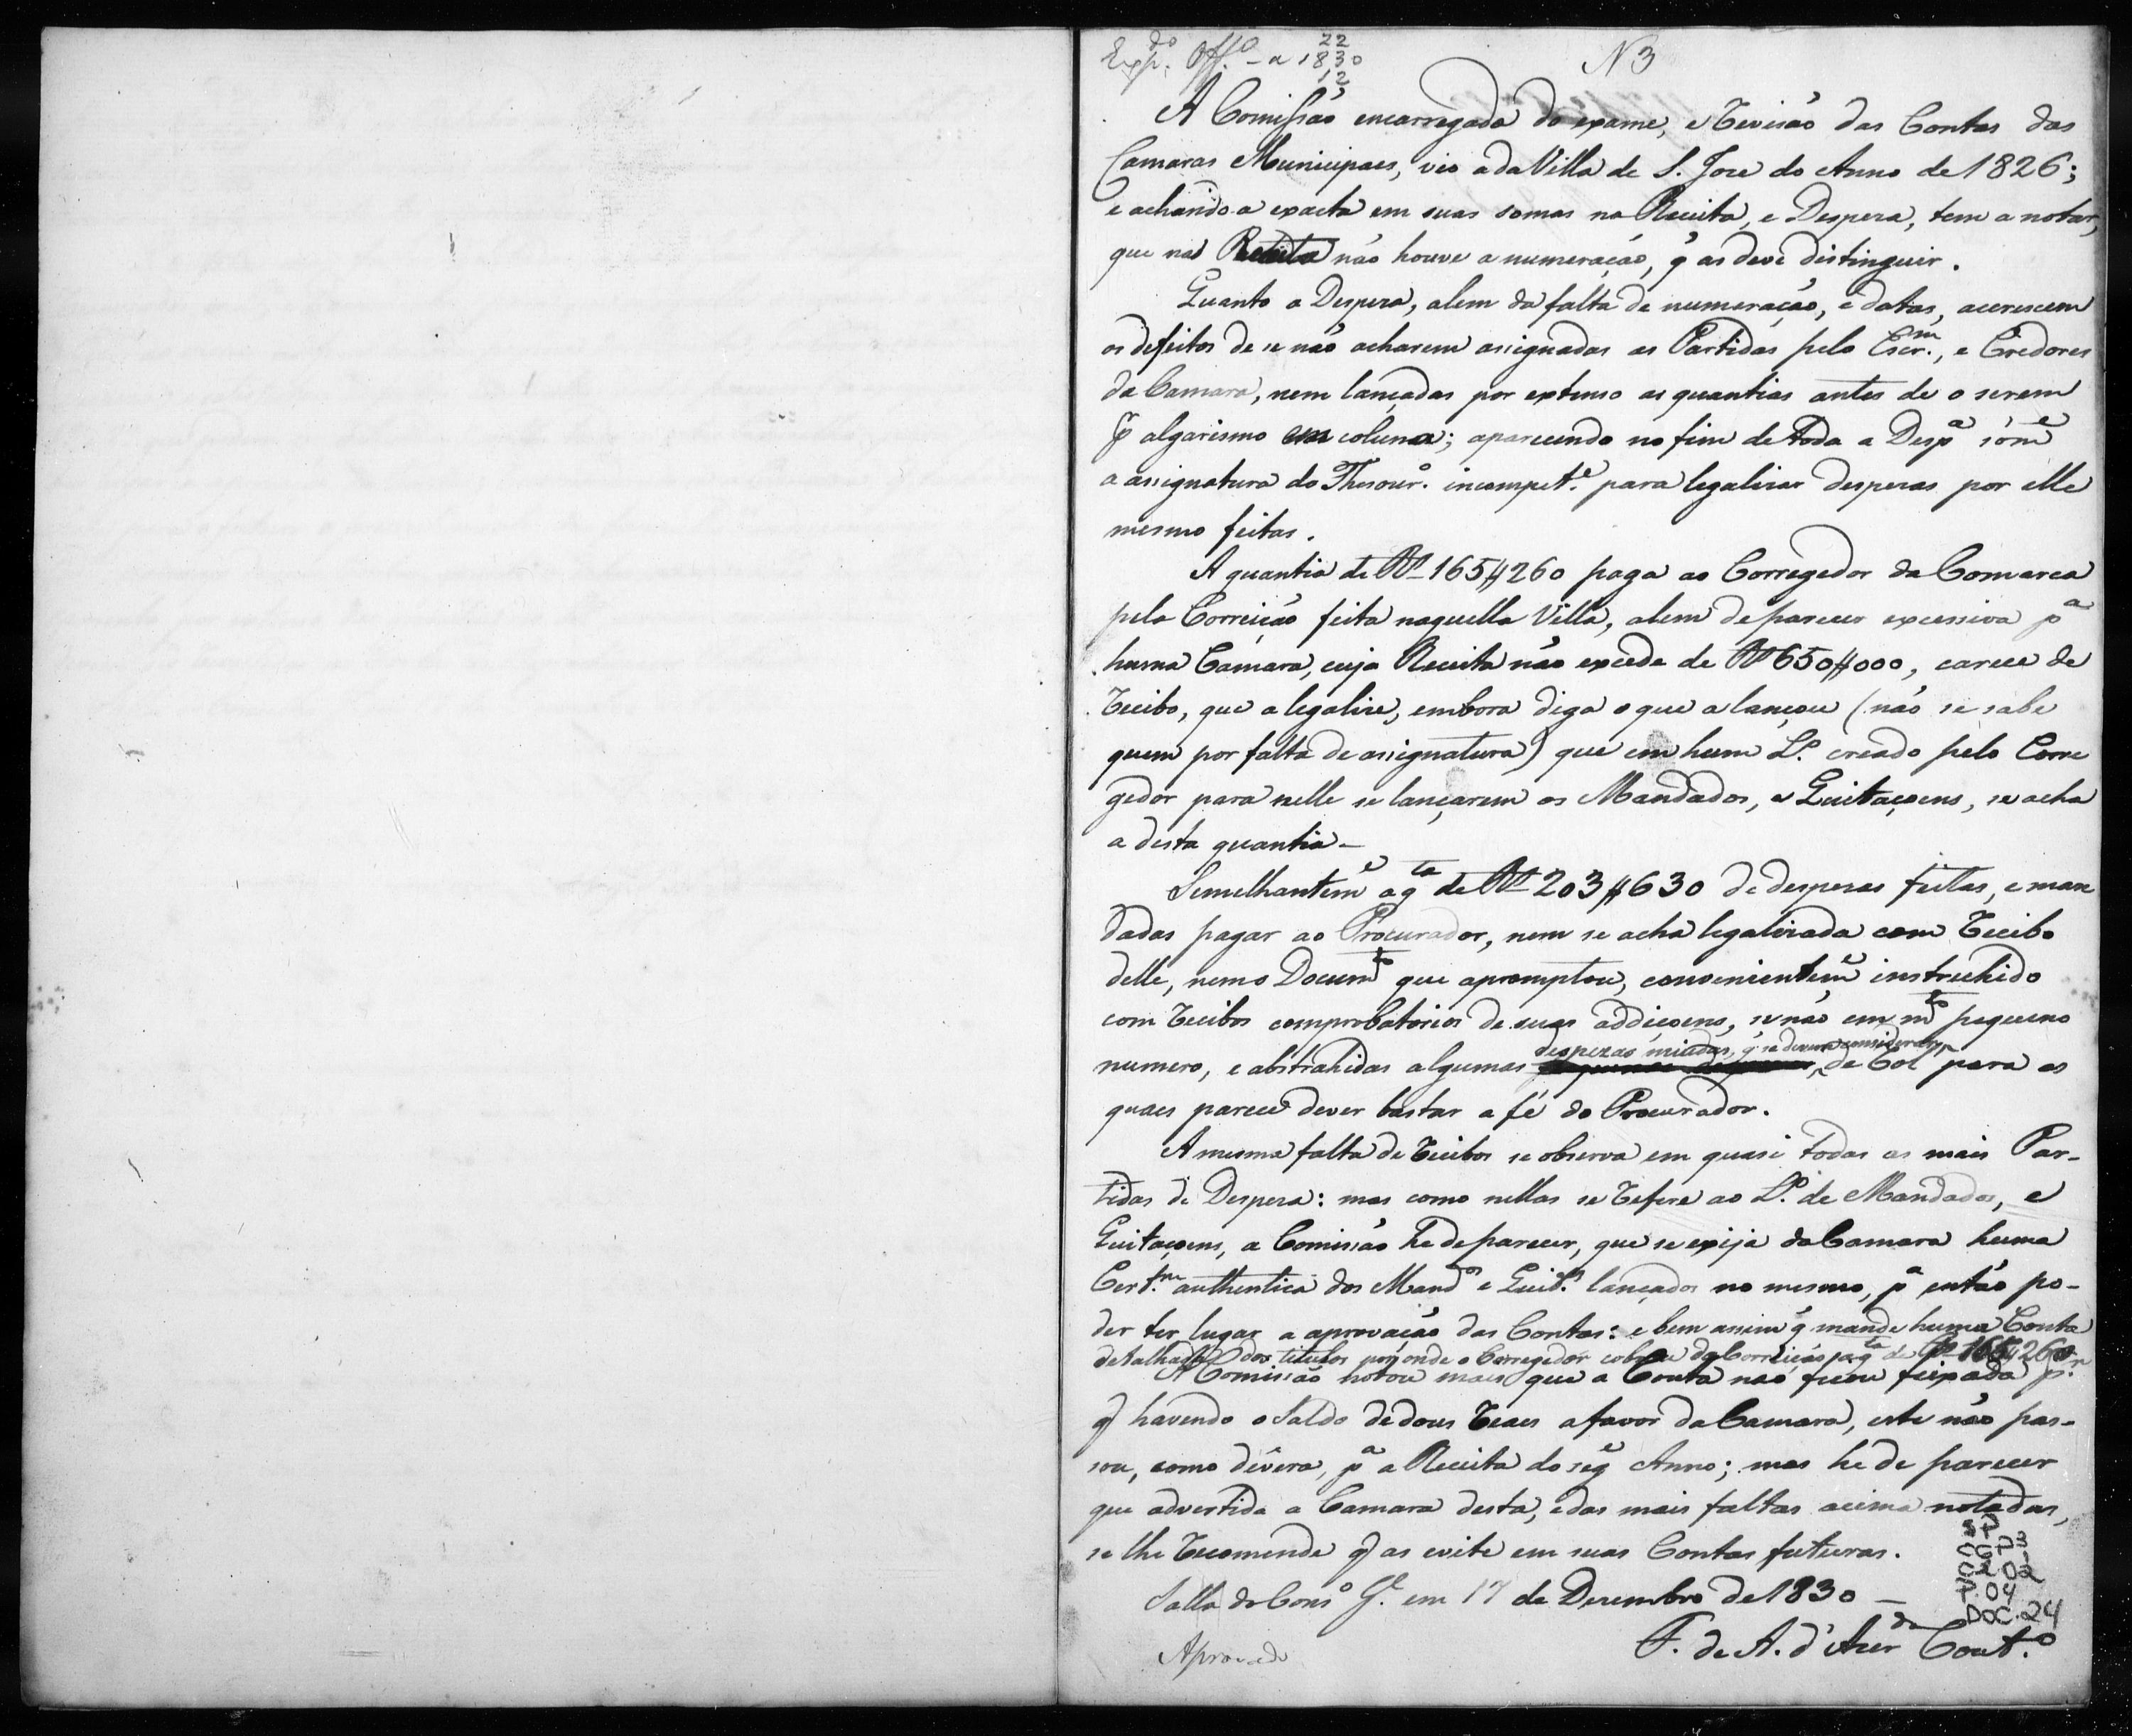 Exp.do Off.o - a 22
1830
12
N 3
A Comissão encarregada do exame, e revisão das Contas das
Camaras Municipaes, vio a da Villa de S. Joze do Anno de 1826;
e achando a exacta em suas somas na Receita, e Despeza, tem a notar,
que na Receita não houve a numeração, q̃ as deve distinguir.
Quanto a Despeza, alem da falta de numeração, e datas, acrescem
os defeitos de se não acharem assignadas as Partidas pelo Escr.m, e Credores
da Camara, nem lançadas por extenso as quantias antes de o serem
p algarismo em coluna; aparecendo no fim de toda a Desp.a sóm.e
a assignatura do Thesour.o incompet.e para legalizar despezas por elle
mesmo feitas.
A quantia de Rs 165$260 paga ao Corregedor da Comarca
pela Correição feita naquella Villa, alem de parecer excessiva p.a
huma Camara, cuja Receita não excede de Rs 650$000, carece de
recibo, que a legalize, embora diga o que a lançou (não se sabe
quem por falta de assignatura) que em hum L.o creado pelo Corre
gedor para nelle se lançarem os Mandados, e Quitaçoens, se acha
a desta quantia -
Semelhantem.e a q.ta de Rs 203$630 de despezas feitas, e man
dadas pagar ao Procurador, nem se acha legalizada com recibo
delle, nem o Docum.to que apromptou, convenientem.e instruhido
com recibos comprobatorios de suas addiçoens, se não em m.to pequeno
despezas miudas, q̃ se devem considerar,
numero, e abstrahidas algumas de rol para as
quaes parece dever bastar a fé do Procurador.
A mesma falta de recibos se observa em quasi todas as mais Par-
tidas de Despeza: mas como nellas se refere ao L.o de Mandados, e
Quitaçoens, a Comissão he de parecer, que se exija da Camara huma
Cert.m authentica dos Mand.os e Quit.es lançados no mesmo, p.a então po-
der ter lugar a aprovação das Contas: e bem assim q̃ mande huma Conta
detalhada dos titulos por onde o Corregedor cobrou da Correição a q.ta de Rs 165$260
A Comissão notou mais que a Conta não ficou feixada p.r
q̃ havendo o Saldo de dous reaes a favor da Camara, este não pas-
sou, como devêra, p.a a Receita do seg.e Anno; mas he de parecer
que advertida a Camara desta, e das mais faltas acima notadas,
se lhe recomende q̃ as evite em suas Contas futuras.
Salla do Cons.o G.l em 17 de Dezembro de 1830 -
F. de A. d'Azer.do Cout.o
Aprovado
SP
CGP3
C2.02
P.04
DOC.24